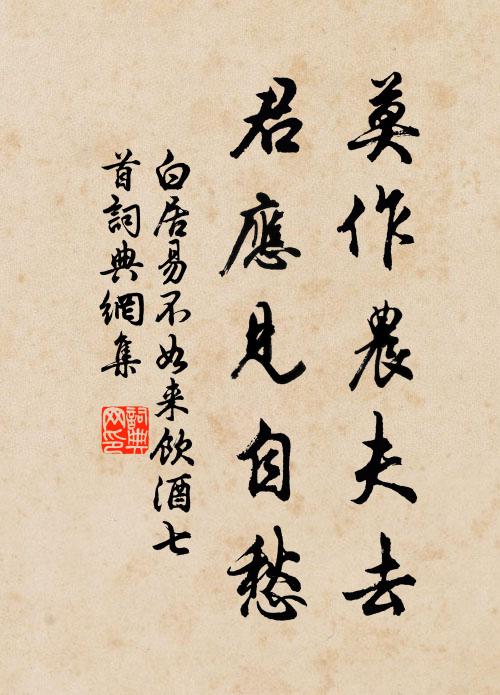 莫作農夫去
君應見自愁
白居易不如来飲酒七
首詞典網集
詞典网印